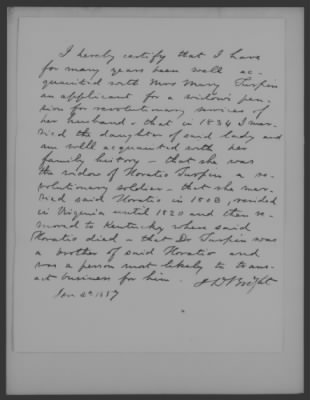 I hereby certify that I have
for many years been well ac-
quainted with Mrs Mary Turpin
an applicant for a widow's pen-
sion for revolutionary services of
her husband - that in 1834 I mar-
ried the daughter of said lady and
am well acquainted with her
family history - that she was
the widow of Horatio Turpin a re-
volutionary soldier - that she mar-
ried said Horatio in 1803, resided
in Virginia until 1820 and then re-
moved to Kentucky where said
Horatio died - that Dr Turpin was
a brother of said Horatio and
was a person most likely to trans-
act business for him. Wright
Jan